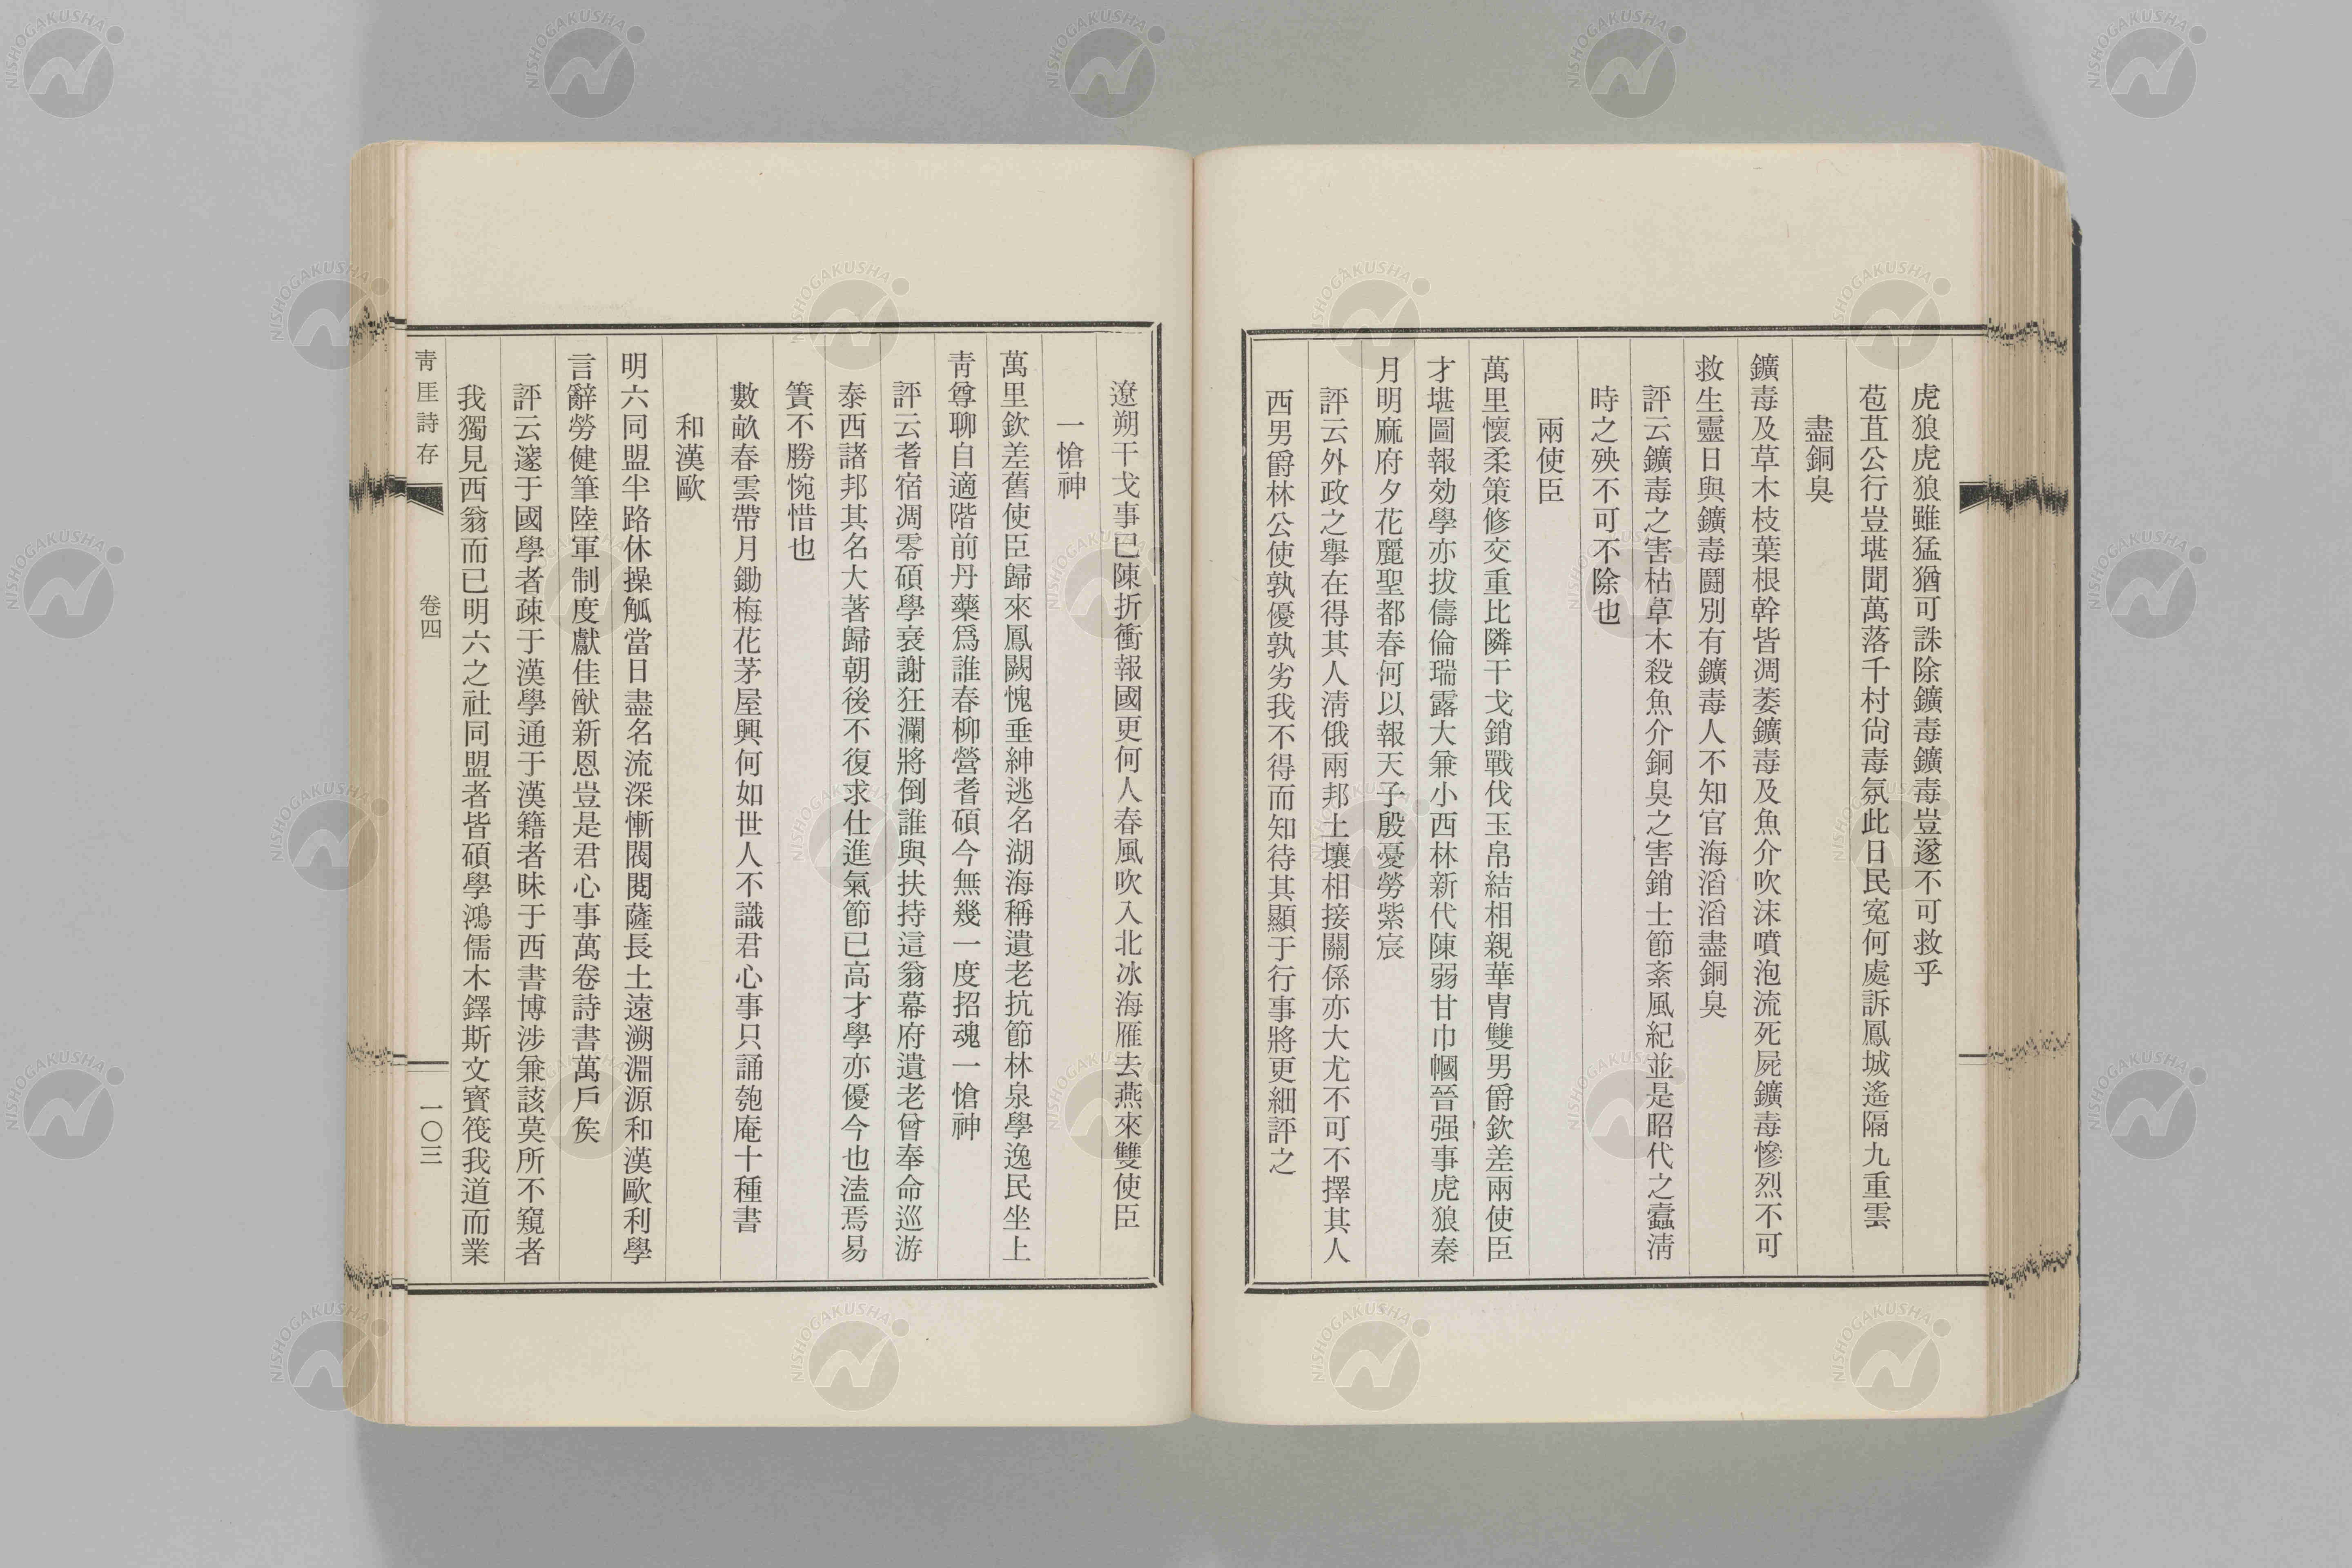 虎狼虎狼雖猛猶可誅除鑛毒鑛毒豈遂不可救乎
苞苴公行豈堪聞萬落千村尙毒氛此日民冤何處訴鳳城遙隔九重雲
盡銅臭
鑛毒及草木枝葉根幹皆凋萎鑛毒及魚介吹沫噴泡流死屍鑛毒慘烈不可
救生靈日與鑛毒鬪別有鑛毒人不知官海滔滔盡銅臭
評云鑛毒之害枯草木殺魚介銅臭之害銷士節紊風紀並是昭代之蠹淸
時之殃不可不除也
兩使臣
萬里懷柔策修交重比隣干戈銷戰伐玉帛結相親華冑雙男爵欽差兩使臣
才堪圖報効學亦拔儔倫瑞露大兼小西林新代陳弱甘巾幗晉强事虎狼秦
月明麻府夕花麗聖都春何以報天子殷憂勞紫宸
評云外政之擧在得其人淸俄兩邦土壤相接關係亦大尤不可不擇其人
西男爵林公使孰優孰劣我不得而知待其顯于行事將更細評之
遼朔干戈事已陳折衝報國更何人春風吹入北冰海雁去燕來雙使臣
一愴神
萬里欽差舊使臣歸來鳳闕愧垂紳逃名湖海稱遺老抗節林泉學逸民坐上
靑尊聊自適階前丹藥爲誰春柳營耆碩今無幾一度招魂一愴神
評云耆宿凋零碩學衰謝狂瀾將倒誰與扶持這翁幕府遺老曾奉命巡游
泰西諸邦其名大著歸朝後不復求仕進氣節已高才學亦優今也溘焉易
簀不勝惋惜也
數畝春雲帶月鋤梅花茅屋興何如世人不識君心事只誦匏庵十種書
和漢歐
明六同盟半路休操觚當日盡名流深慚閥閱薩長土遠溯淵源和漢歐利學
言辭勞健筆陸軍制度獻佳猷新恩豈是君心事萬卷詩書萬戶矦
評云邃于國學者疎于漢學通于漢籍者昧于西書博涉兼該莫所不窺者
我獨見西翁而已明六之社同盟者皆碩學鴻儒木鐸斯文寶筏我道而業
靑厓詩存
卷四
一〇三
NISHOGAKUSHA